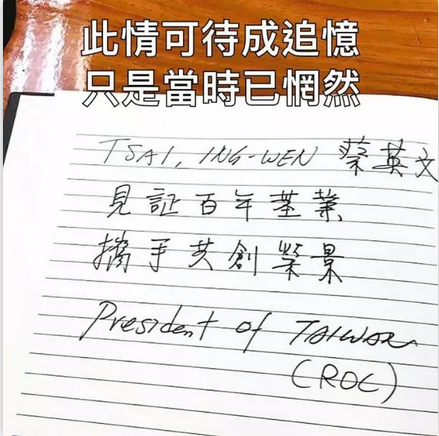 此情可待成追憶
只是當時已惘然
TSAI, ING-WEN 蔡英文
見証百年基業
攜手共創榮景
President of TAIWAN
(ROC)